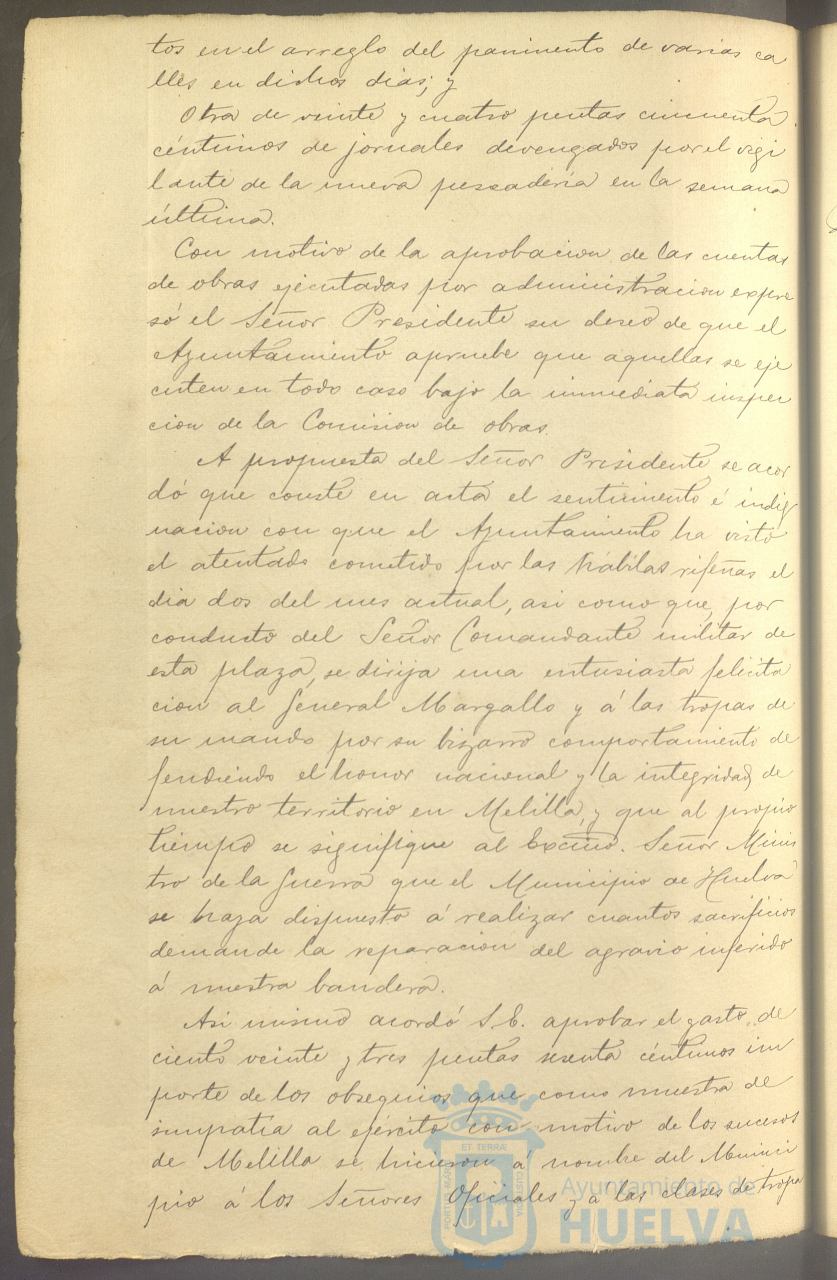 tos en el arreglo del pavimento de varias ca
lles en dichos dias; y
Otra de veinte y cuatro pesetas cincuenta
céntimos de jornales devengados por el vigi
lante de la nueva pescadería en la semana
última.
Con motivo de la aprobacion de las cuentas
de obras ejecutadas por administracion expre
só el Señor Presidente su deseo de que el
Ayuntamiento apruebe que aquellas se eje
cuten en todo caso bajo la inmediata inspec
cion de la Comision de obras.
A propuesta del Señor Presidente se acor
dó que conste en acta el sentimiento é indig
nacion con que el Ayuntamiento ha visto
el atentado cometido por las kábilas rifeñas el
dia dos del mes actual, asi como que, por
conducto del Señor Comandante militar de
esta plaza, se dirija una entusiasta felicita
cion al General Margallo y á las tropas de
su mando por su bizarro comportamiento de
fendiendo el honor nacional y la integridad de
nuestro territorio en Melilla, y que al propio
tiempo se signifique al Excmo. Señor Minis
tro de la Guerra que el Municipio de Huelva
se haya dispuesto á realizar cuantos sacrificios
demande la reparacion del agravio inferido
á nuestra bandera.
Asi mismo acordó S.E. aprobar el gasto de
ciento veinte y tres pesetas sesenta céntimos im
porte de los obsequios que como muestra de
simpatía al ejército con motivo de los sucesos
de Melilla se hicieron á nombre del Munici
pio á los Señores Oficiales y a las clases de tropa
ET TERRÆ
CUSTODIA
Ayuntamiento de
HUELVA